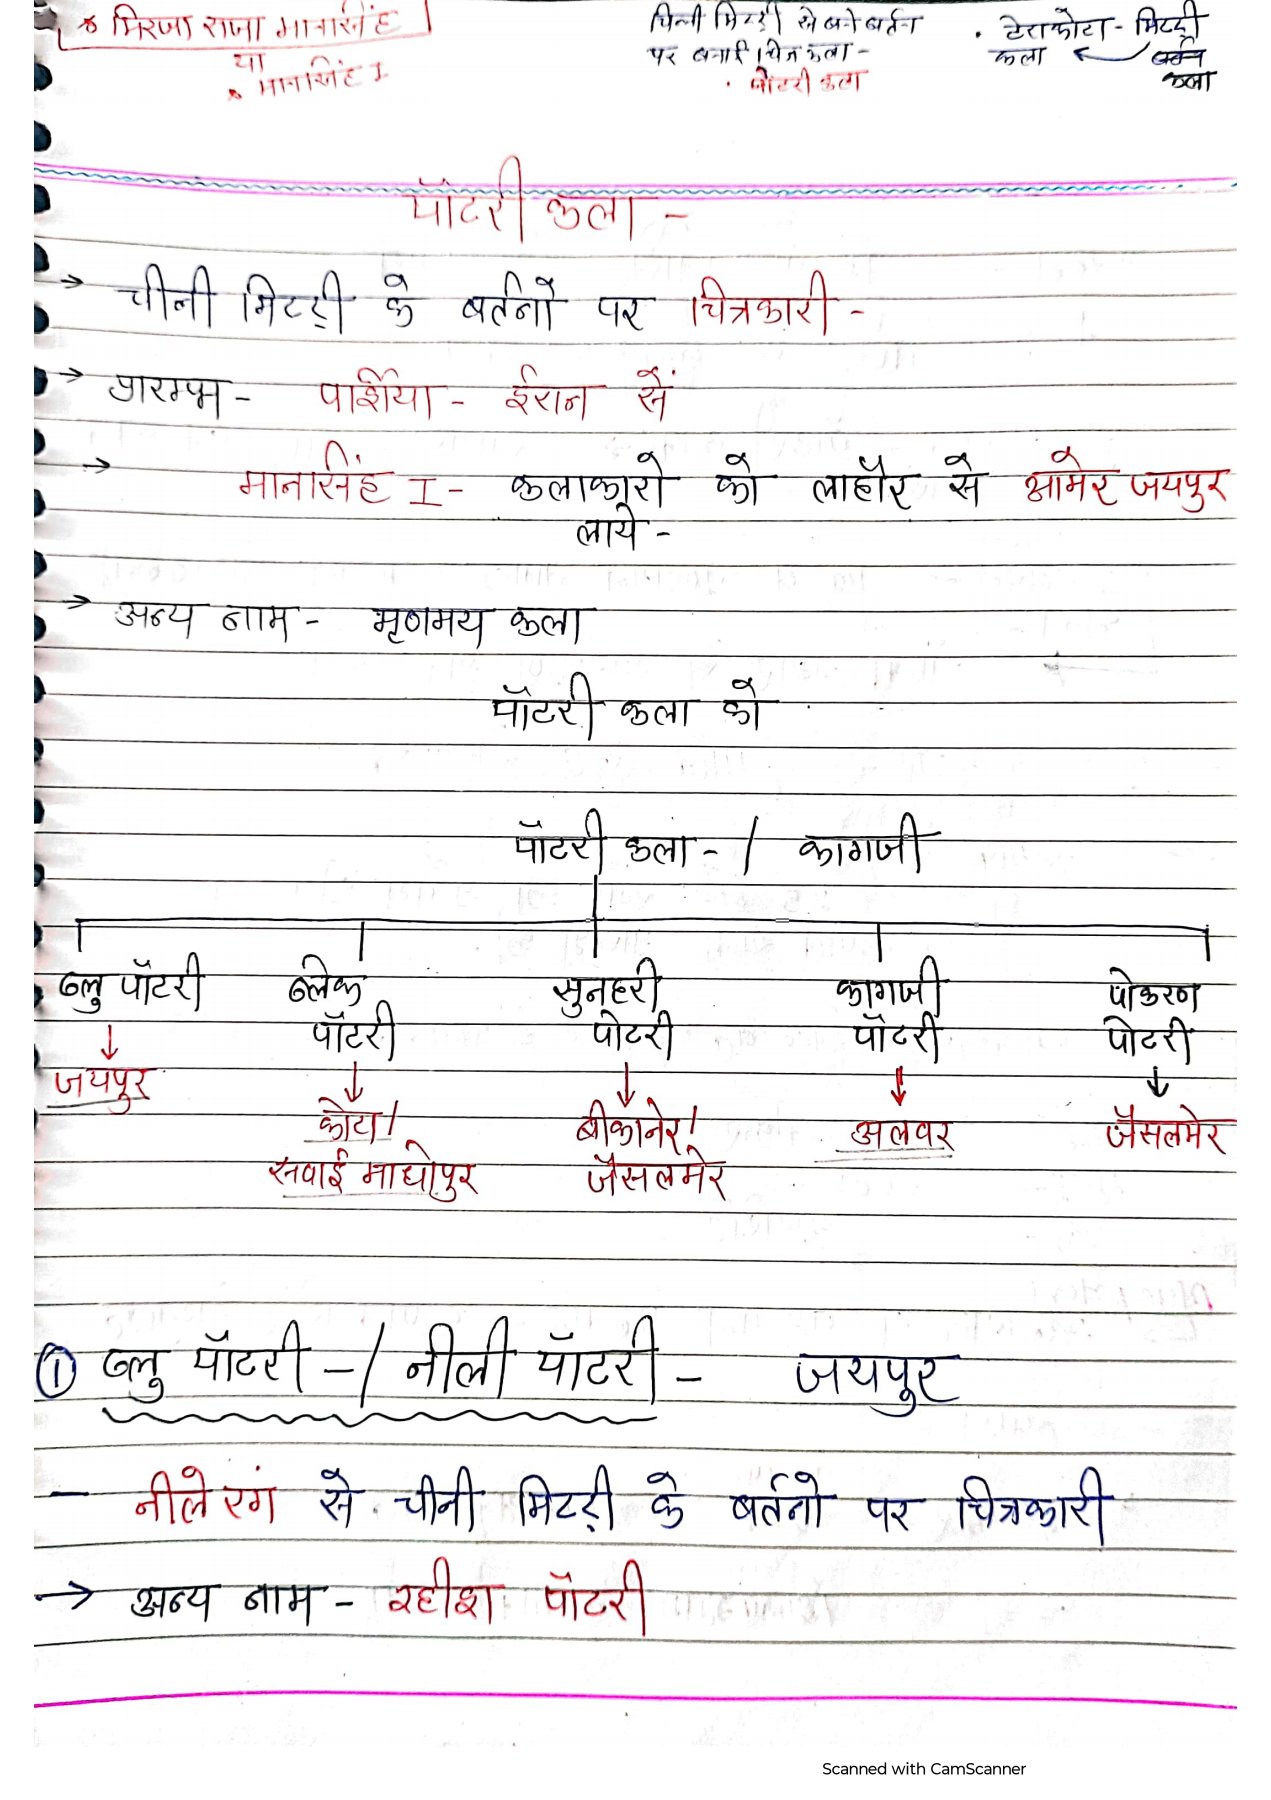 * मिरजा राजा मानसिंह
या
* मानसिंह I
चिनी मिटटी से बने बर्तन
पर बनाई चित्रकला -
• पोटरी कला
• टेराकोटा - मिटटी
कला
बर्तन
कला
पॉटरी कला -
→ चीनी मिटटी के बर्तनो पर चित्रकारी -
→ प्रारम्भ - पार्शिया - ईरान सें
→ मानसिंह I - कलाकारो को लाहौर से आमेर जयपुर
लाये -
→ अन्य नाम - मृणमय कला
पॉटरी कला को
पॉटरी कला - / कागजी
ब्लु पॉटरी ब्लेक सुनहरी कागजी पोकरण
पॉटरी पोटरी पॉटरी पोटरी
↓ ↓ ↓ ↓ ↓
जयपुर कोटा / बीकानेर / अलवर जैसलमेर
सवाई माधोपुर जैसलमेर
① ब्लु पॉटरी - / नीली पॉटरी - जयपुर
- नीले रंग से चीनी मिटटी के बर्तनो पर चित्रकारी
→ अन्य नाम - रहीश पॉटरी
Scanned with CamScanner